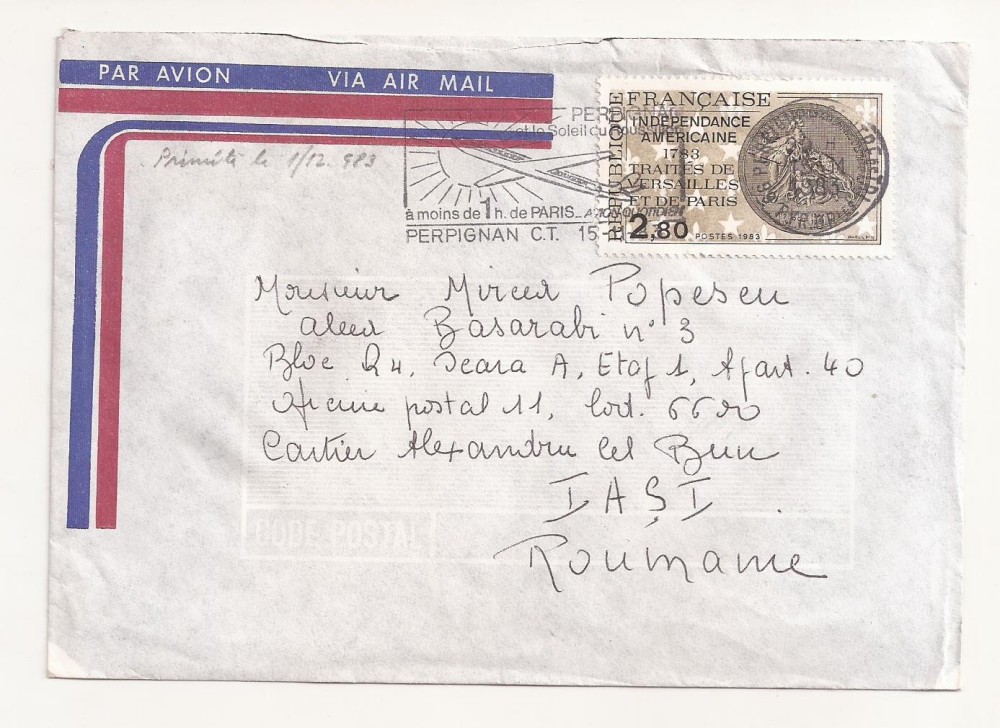 PAR AVION VIA AIR MAIL
Primită le 1/12. 983
PERPIGNAN
et le Soleil du
à moins de 1h. de PARIS_AVION QUOTIDIEN
PERPIGNAN C.T. 15-
RÉPUBLIQUE FRANÇAISE
INDÉPENDANCE
AMÉRICAINE
1783
TRAITÉS DE
VERSAILLES
ET DE PARIS
2,80 POSTES 1983
1983
Monsieur Mircea Popescu
aleea Basarabi n° 3
Bloc R4, Scara A, Etaj 1, Apart. 40
Oficiu postal 11, Cod. 6620
Cartier Alexandru cel Bun
IAŞI
Roumanie
CODE POSTAL